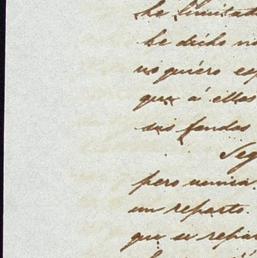 he limitad
he dicho no
no quiero es
que á ellos
sus fondos
Seg
pero nunca
un reparto.
que se repar